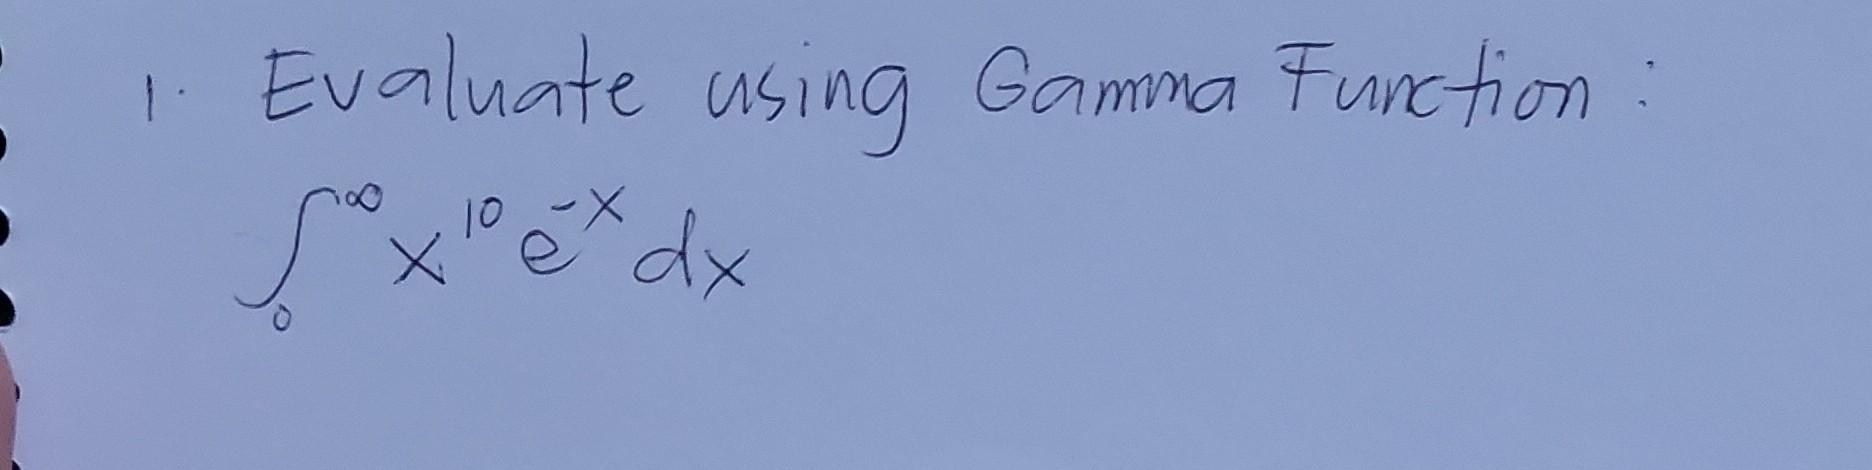 1. Evaluate using Gamma Function:
∫₀^∞ x¹⁰ e⁻ˣ dx